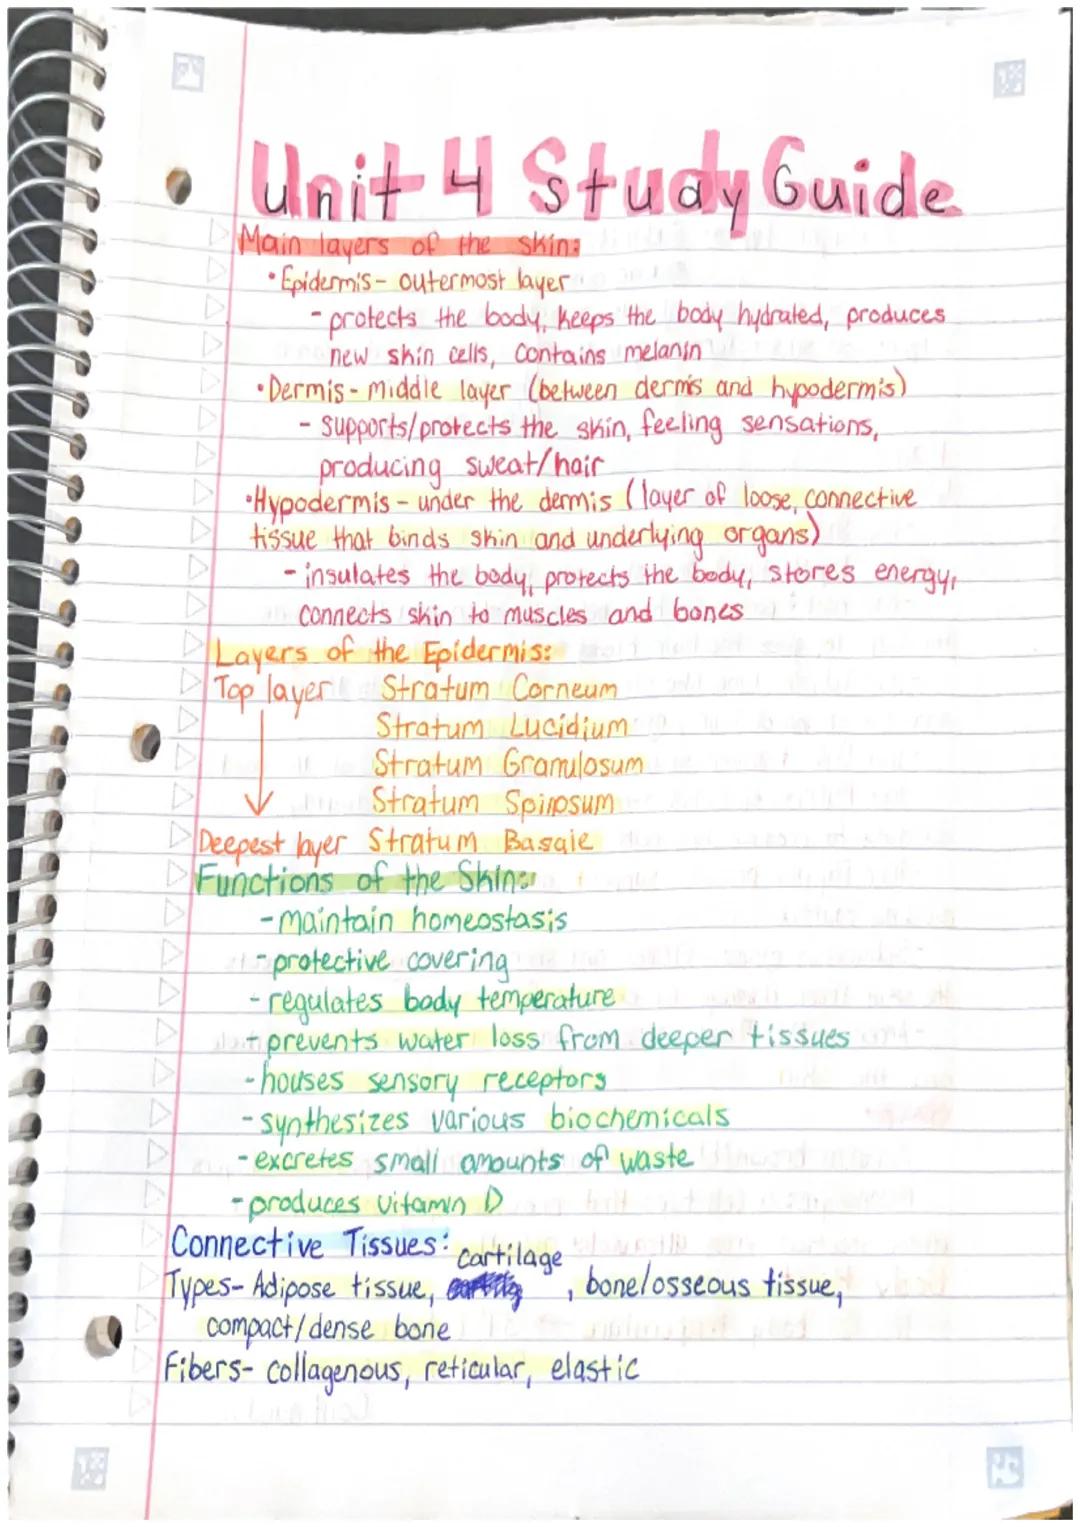 Unit 4 Study Guide
Main layers of the skin:
• Epidermis- outermost layer
- protects the body, keeps the body hydrated, produces
new skin cells, contains melanin
• Dermis- middle layer (between dermis and hypodermis)
- supports/protects the skin, feeling sensations,
producing sweat/hair
• Hypodermis- under the dermis (layer of loose, connective
tissue that binds skin and underlying organs)
- insulates the body, protects the body, stores energy,
connects skin to muscles and bones
Layers of the Epidermis:
Top layer Stratum Corneum
Stratum Lucidium
Stratum Granulosum
Stratum Spinosum
Deepest layer Stratum Basale
Functions of the Skin:
- maintain homeostasis
- protective covering
- regulates body temperature
- prevents water loss from deeper tissues
- houses sensory receptors
- synthesizes various biochemicals
- excretes small amounts of waste
- produces vitamin D
Connective Tissues:
Types- Adipose tissue, cartilage, bone/osseous tissue,
compact/dense bone
Fibers- collagenous, reticular, elastic